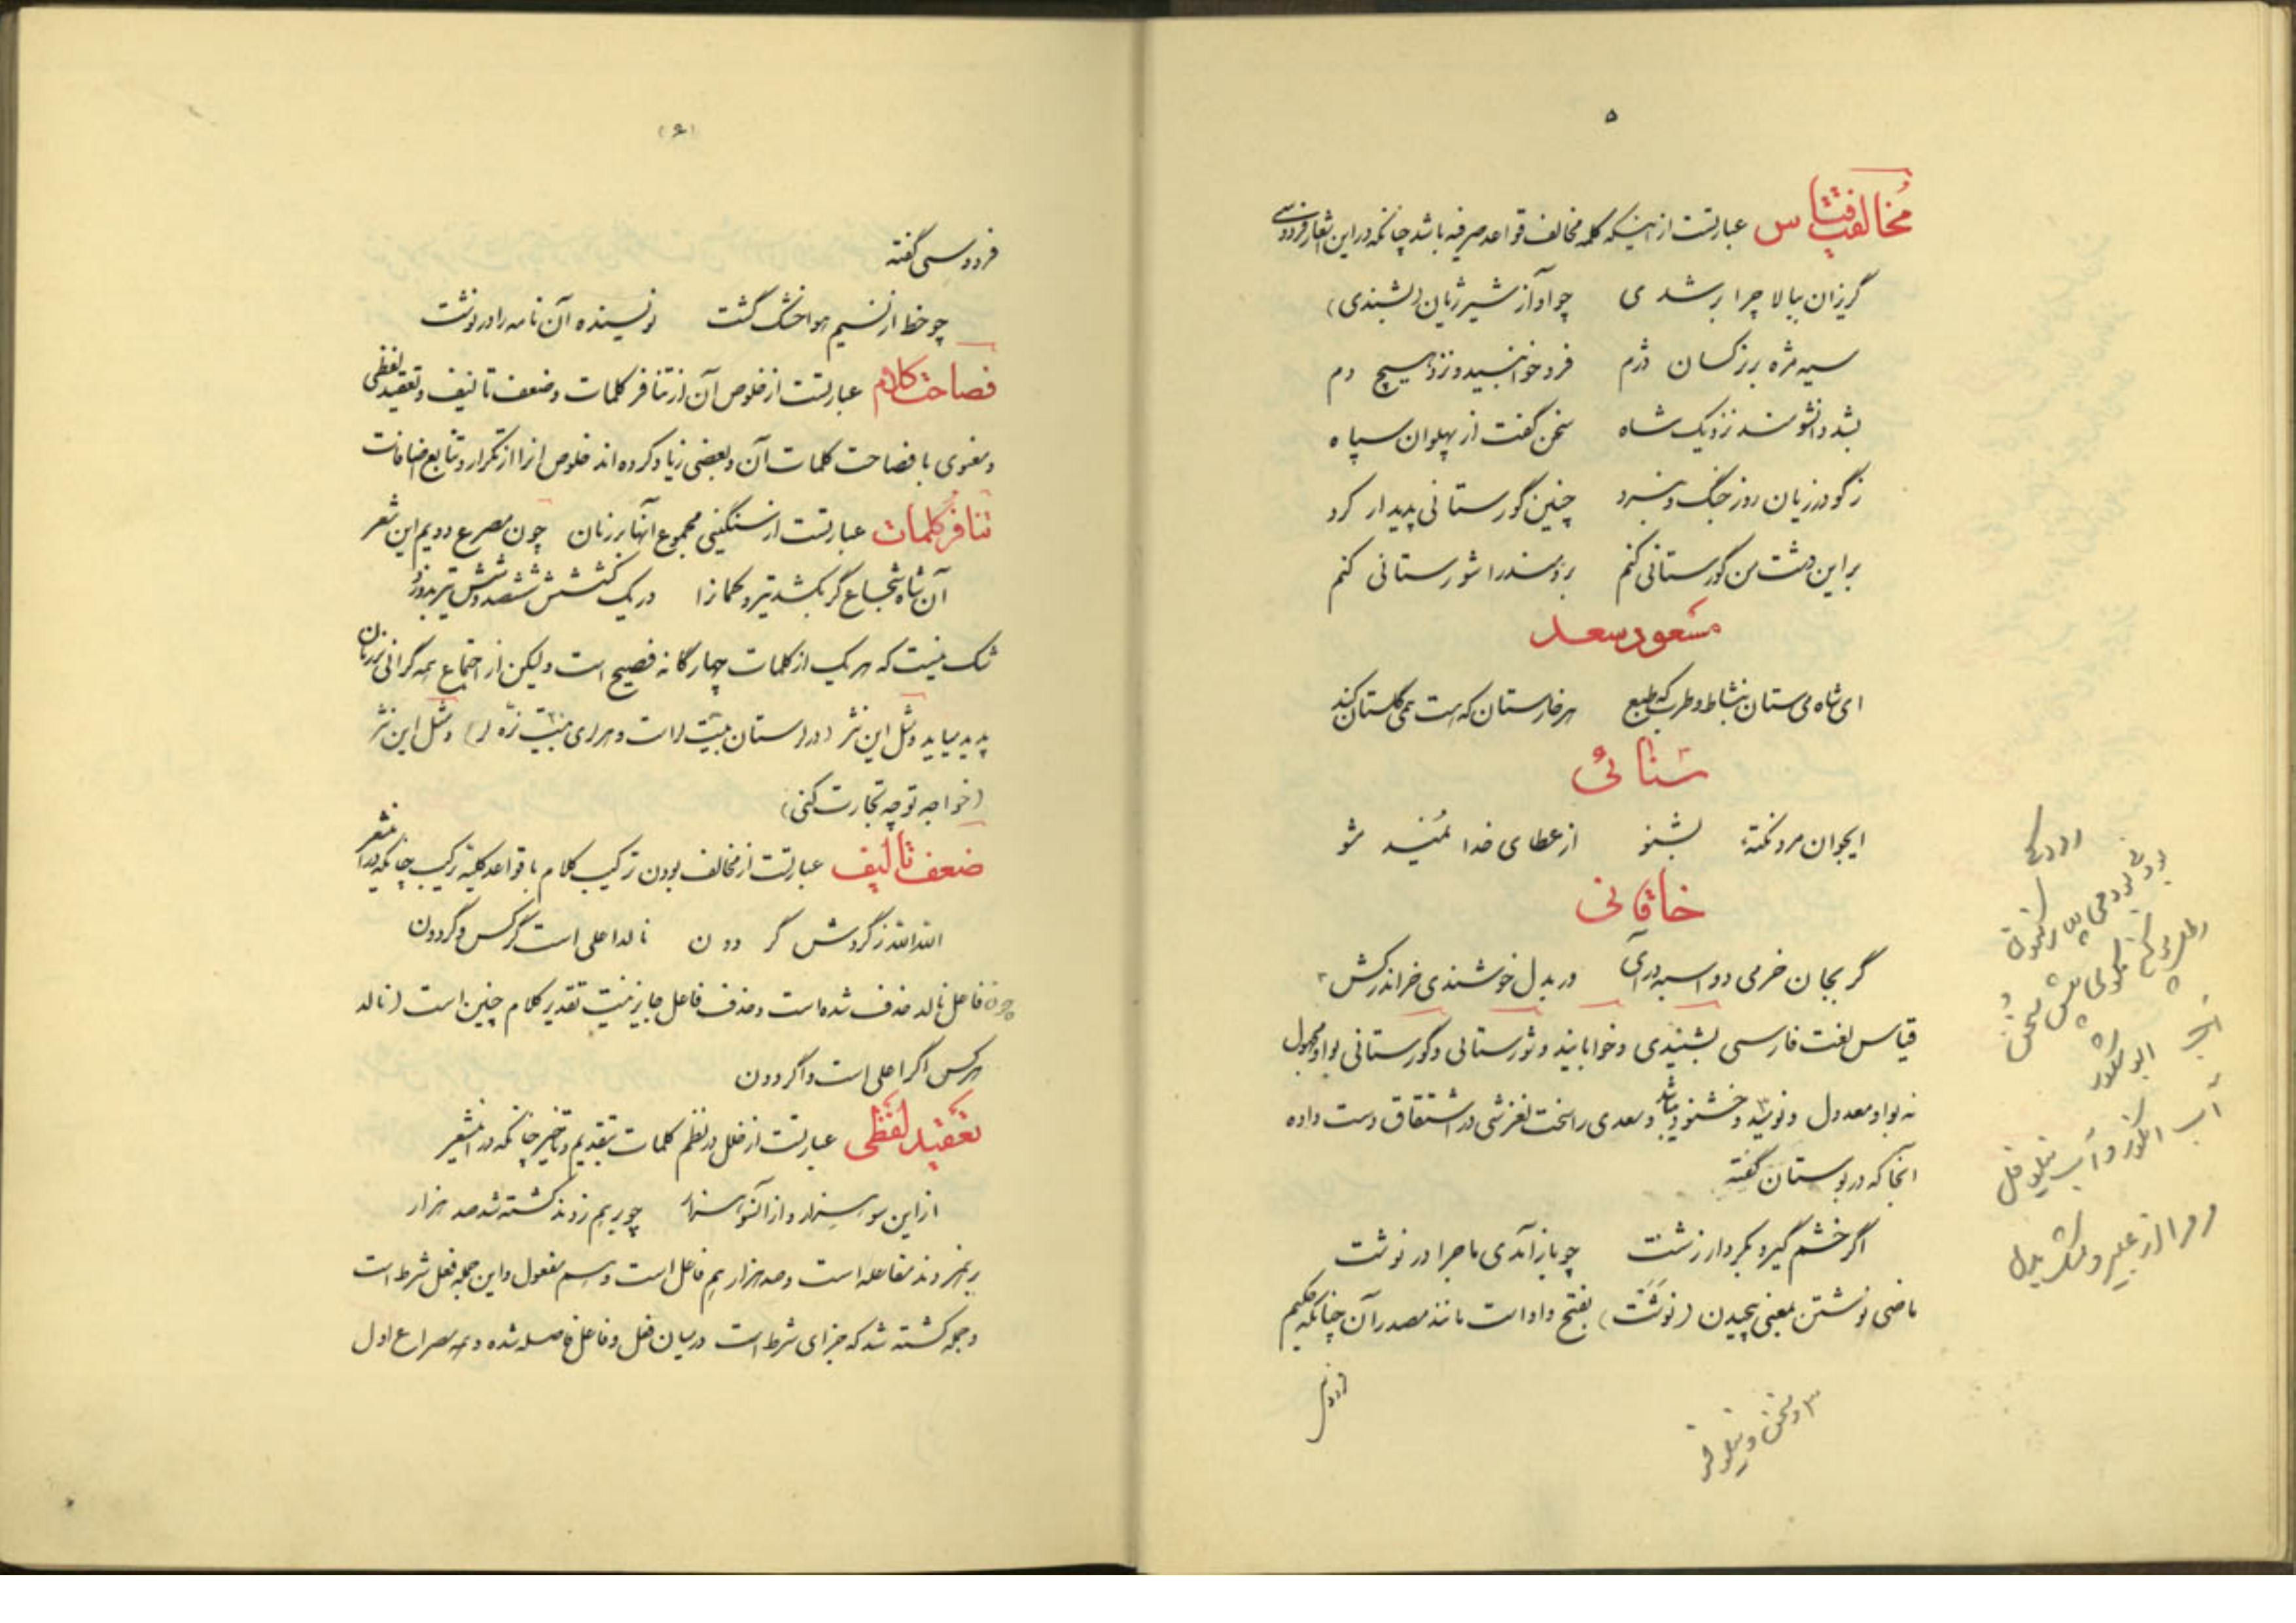 ۵
مخالفت قیاس عبارتست از اینکه کلمه مخالف قواعد صرفیه باشد چنانکه در این اشعار فردوسی
گریزان ببالا چرا برشدی چو آواز شیر ژیان (بشنیدی)
سیه مژه بر نرگسان دژم فرو خوابنید و نزد هیچ دم
بشد دانشومند نزدیک شاه سخن گفت از پهلوان سپاه
ز گودرزیان روز جنگ و نبرد چنین گورستانی پدیدار کرد
بر این دشت من گورستانی کنم برومند را شورستانی کنم
مسعود سعد
ای شاه می ستان بنشاط و طرب که طبع هر خارستان که هست همی گلستان کند
سنائی
ایجوان مرد نکتهٔ بشنو از عطای خدا نمنید مشو
خاقانی
گر بجان خرمی دواسبه درآی ور بدل خوشندی خر اندر کش
قیاس لغت فارسی بشنیدی و خوابانید و شورستانی و گورستانی بواو مجهول
نه بواو معدول و نومید و خشنود باشد و سعدی را سخت لغزشی در اشتقاق دست داده
آنجا که در بوستان گفته
اگر خشم گیرد بکردار زشت چو باز آمدی ماجرا در نوشت
ماضی نوشتن بمعنی پیچیدن (نوشت) بفتح واو است مانند مصدر آن چنانکه حکیم
فردوسی
رودکی
ابو شکور
آب انگور و آب نیلوفل
مر مرا از عبیر و مشک بدل
(۶)
فردوسی گفته
چو خط از نسیم هوا خشک گشت نویسنده آن نامه را در نوشت
فصاحت کلام عبارتست از خلوص آن از تنافر کلمات و ضعف تالیف و تعقید لفظی
و معنوی با فصاحت کلمات آن و بعضی زیاد کرده اند خلوص انرا از تکرار و تتابع اضافات
تنافر کلمات عبارتست از سنگینی مجموع آنها بر زبان چون مصرع دویم این شعر
آن شاه شجاع گر بکشد تیر و کمانرا در یک کشش ششصد و شش تیر بدوزد
شک نیست که هر یک از کلمات چهارگانه فصیح است ولیکن از اجتماع همه گرانی بر زبان
پدید میاید و مثل این نثر و مثل این نثر
(خواجه تو چه تجارت کنی)
ضعف تالیف عبارتست از مخالف بودن ترکیب کلام با قواعد کلیهٔ ترکیب چنانکه در این شعر
الله الله ز گردش گردون نالد اعلی است گر کس و گر دون
چون فاعل نالد حذف شده است و حذف فاعل جایز نیست تقدیر کلام چنین است (نالد
هر کس اگر اعلی است و اگر دون
تعقید لفظی عبارتست از خلل در نظم کلمات بتقدیم و تاخیر چنانکه در اینشعر
از این سو هزار و از آنسو هزار چو بر هم زدند کشته شد صد هزار
بر هم زدند مفاعله است و صد هزار هم فاعل است و هم مفعول و این جمله فعل شرط است
و جمله کشته شد که جزای شرط است در میان فعل و فاعل فاصله شده و همه مصراع اول